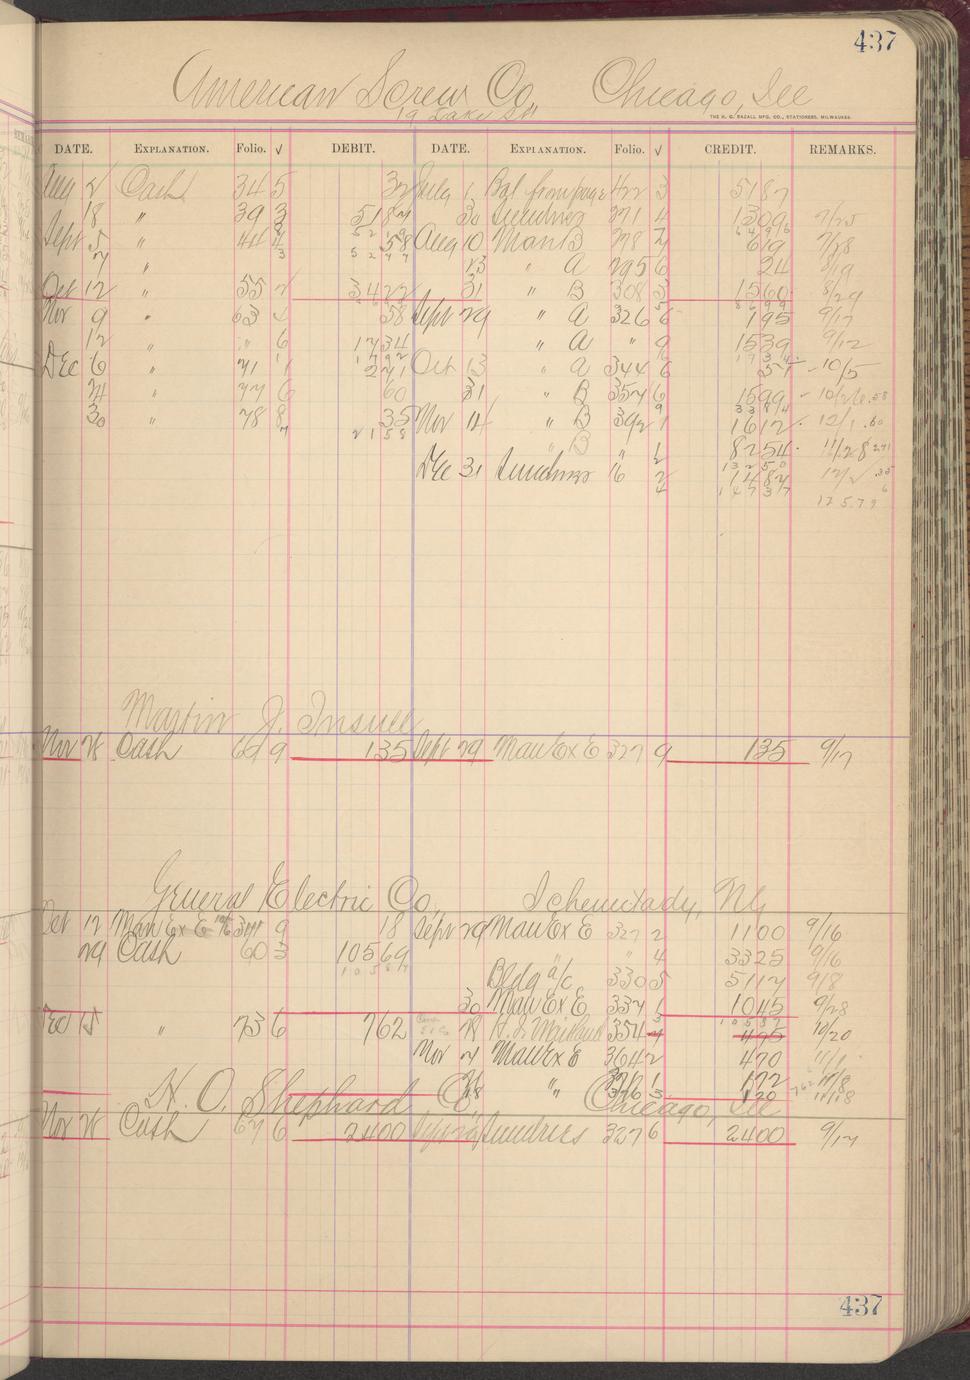 437
American Screw Co., Chicago, Ill
19 Lake St
THE H. G. RAZALL MFG. CO., STATIONERS, MILWAUKEE.
DATE. EXPLANATION. Folio. √ DEBIT. DATE. EXPLANATION. Folio. √ CREDIT. REMARKS.
Aug 2 Cash 34 5 32 Aug 1 Bal from page 422 3 5187
18 " 39 3 5187 30 Sundries 271 4 1309 7/25
Sept 5 " 44 4 58 Aug 10 Man B 278 7 619 7/28
7 " 23 " A 295 6 24 8/19
Oct 12 " 55 2 3422 31 " B 308 5 1560 8/29
Nov 9 " 63 58 Sept 29 " A 326 6 195 9/17
12 " " 6 1734 " A " 9 1539 9/12
Dec 6 " 71 1 271 Oct 13 " A 344 6 10/5
" 77 6 60 31 " B 357 6 1599
30 " 78 8 35 Nov 14 " B 392 1 1612 12/1 .60
2158 " B " 1 8254 11/28 271
Dec 31 Sundries 16 2 1487 12/2 .35
14737 12579
Martin J. Insull
Nov 28 Cash 669 9 135 Sept 29 Man Ex E 327 9 135 9/17
General Electric Co., Schenectady, NY
Oct 12 Man Ex E 341 9 18 Sept 29 Man Ex E 327 2 1100 9/16
29 Cash 60 3 10569 " 4 3325 9/16
Bldg a/c 330 5 5117 9/8
30 Man Ex E 337 1 1045 9/28
Dec 15 " 73 6 762 354 495 10/20
Nov 7 Man Ex E 364 2 470
" 1 172 11/8
18 376 3 120 11/18
H. O. Shephard Co., Chicago, Ill
Nov 28 Cash 67 6 2400 Sept 29 Sundries 327 6 2400 9/17
437